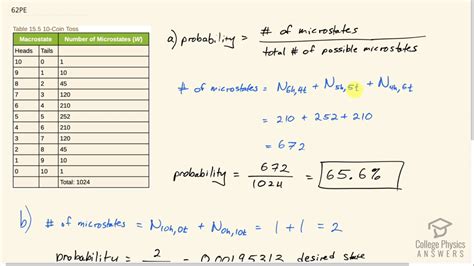 62PE
Table 15.5 10-Coin Toss
Macrostate Number of Microstates (W)
Heads Tails
10 0 1
9 1 10
8 2 45
7 3 120
6 4 210
5 5 252
4 6 210
3 7 120
2 8 45
1 9 10
0 10 1
Total: 1024
a) probability = # of microstates / total # of possible microstates
# of microstates = N5h,4t + N5h,5t + N4h,6t
= 210 + 252 + 210
= 672
probability = 672 / 1024 = 65.6%
b) # of microstates = N10h,0t + N0h,10t = 1 + 1 = 2
probability = 2 = 0.00195313 desired state
College Physics
ANSWERS